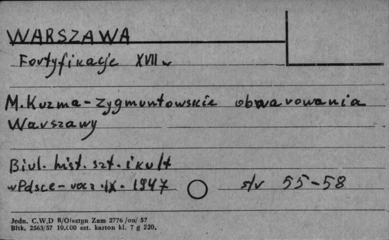 WARSZAWA
Fortyfikacje XVII w
M. Kuzma - Zygmuntowskie obwarowania
Warszawy
Biul. hist. szt. i kult
w Polsce - rocz. IX. 1947 str 55-58
Jedn. C.W.D B/Olsztyn Zam 2776 /on/ 57
Bltk. 2563/57 10.000 szt. karton kl. 7 g 220.